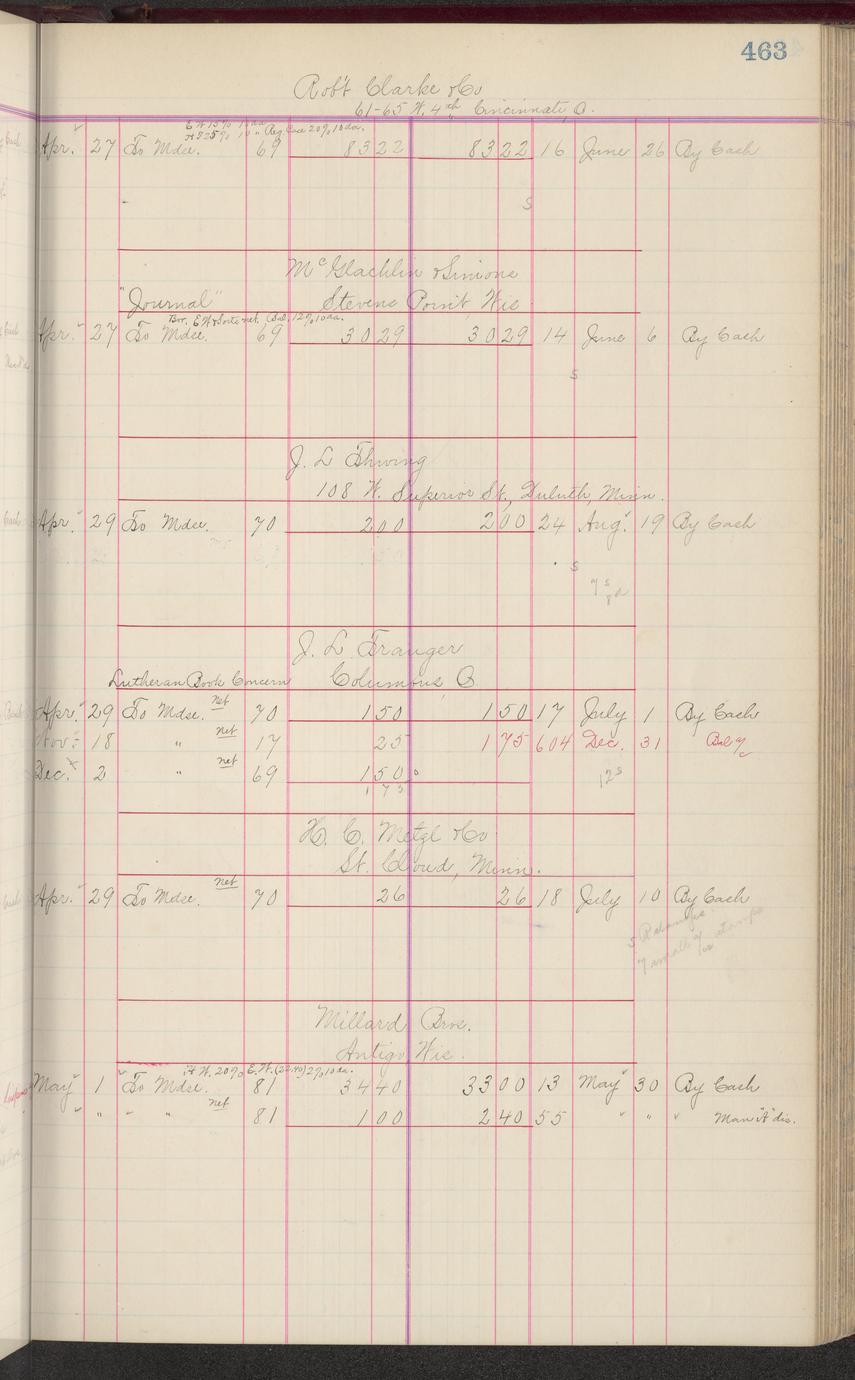 463
Rob't Clarke & Co
61-65 W. 4th Cincinnati, O.
E W 15% 10 da.
H T 25% 10 " Reg. Case 20% 10 da.
Apr. 27 To Mdse. 69 83 22 83 22 16 June 26 By Cash
S
McGlachlin & Simons
"Journal" Stevens Point, Wis
Bor. E W & Sorts net, (Bal. 12% 10 da.
Apr. 27 To Mdse. 69 30 29 30 29 14 June 6 By Cash
S
J. L. Thwing
108 W. Superior St., Duluth, Minn.
Apr. 29 To Mdse. 70 2 00 2 00 24 Aug. 19 By Cash
S
J. L. Tranger
Lutheran Book Concern Columbus, O.
Apr. 29 To Mdse. net 70 1 50 1 50 17 July 1 By Cash
Nov. 18 " net 17 25 1 75 604 Dec. 31 Bal a/c
Dec. 2 " net 69 1 50
1 75
12 S
H. C. Metzl & Co
St. Cloud, Minn.
Apr. 29 To Mdse. net 70 26 26 18 July 10 By Cash
stamps
Millard Bros.
Antigo, Wis.
H W. 20% E. W. (22.40) 2% 10 da.
May 1 To Mdse. 81 34 40 33 00 13 May 30 By Cash
" " " " net 81 1 00 2 40 55 " " " Man "A" dis.